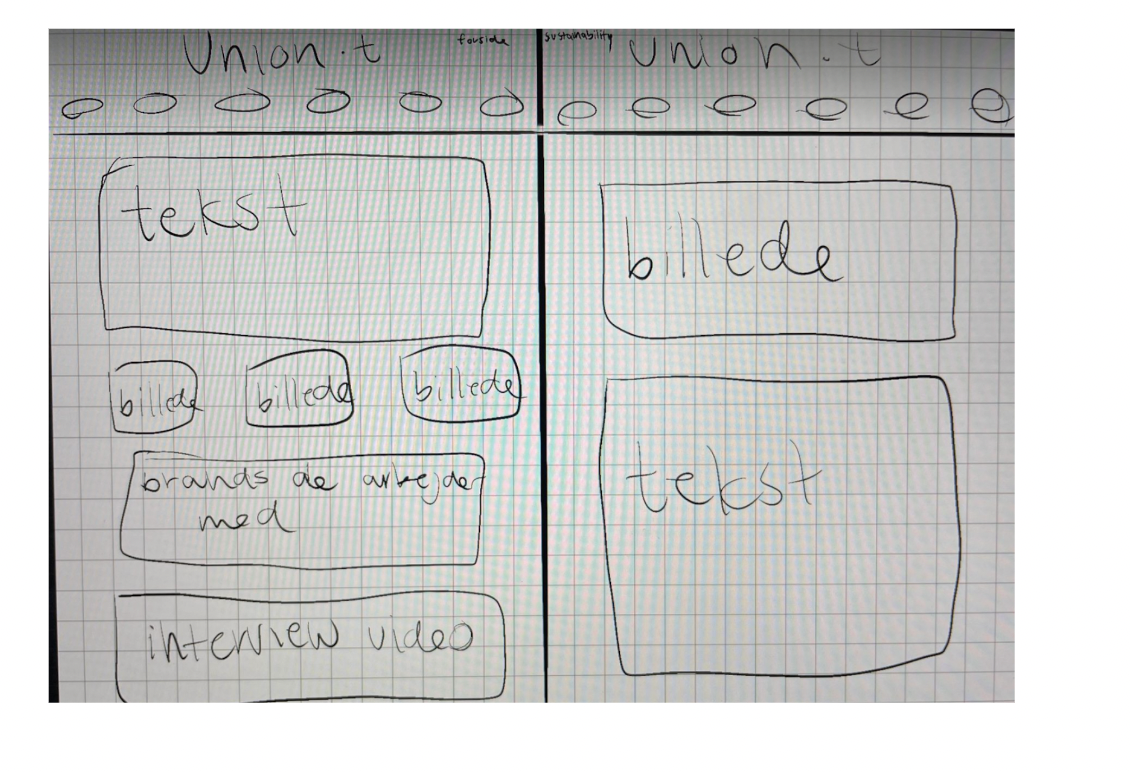 Union.t
forside
tekst
billede billede billede
brands de arbejder
med
interview video
sustainability
Union.t
billede
tekst